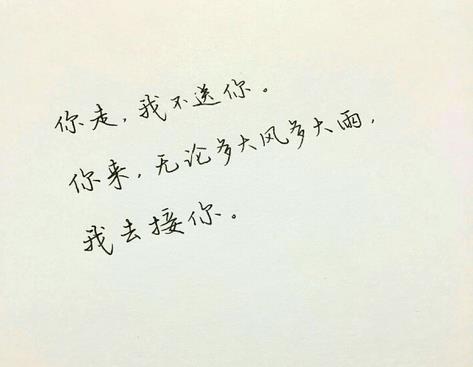 你走，我不送你。
你来，无论多大风多大雨，
我去接你。